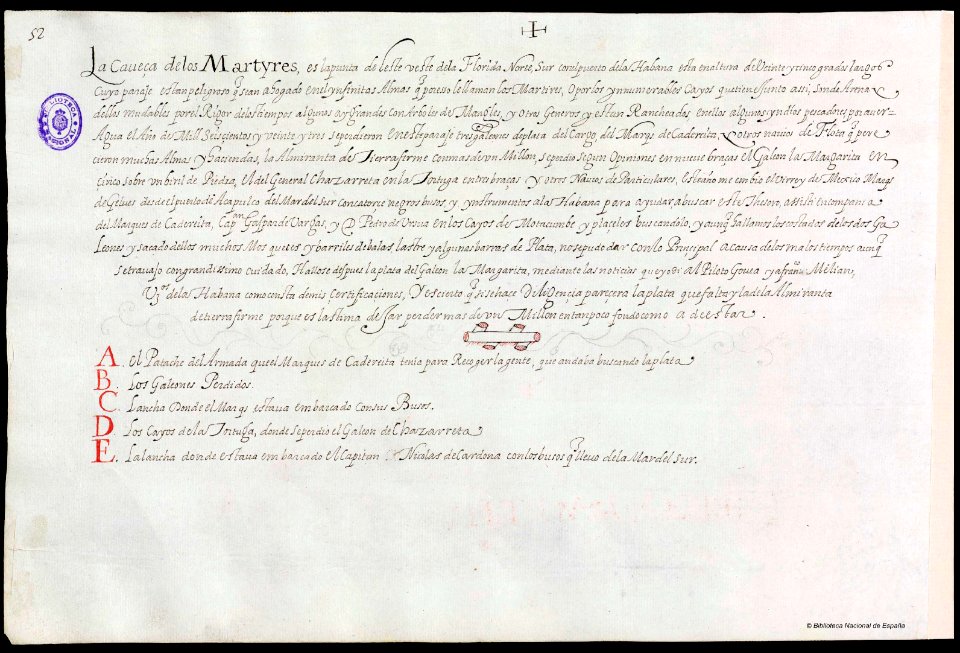 52
La Caueça de los Martyres, es la punta de leste veste dela Florida Norte, Sur con el puerto dela Habana esta en altura de Veinte y cinco grados largos
Cuyo paraje es tan peligroso q̃ sean a ogado en el ynfinitas Almas q̃ por eso le llaman los Martires, O por los ynnumerables Cayos que tiene Junto assi, son de Arena
dellos mudables por el Rigor de los tiempos algunos ay grandes Con Arboles de Mangles, y otros Generos y estan Rancheados en ellos algunos yndios pescadores por auer
Agua el Año de Mill Seiscientos y Veinte y tres se pudieron en este paraje tres galeones de plata del Cargo del Marqs de Cadereita, y otros nauios de Flota q̃ pere
cieron muchas Almas y haziendas, la Almiranta de Tierra firme con mas de vn Millon, se perdio segun Opiniones en nueue braças El Galeon la Margarita en
Cinco sobre vn biril de Piedra, El del General Chazarreta en la Tortuga en tres braças y otros Nauios de Particulares, este año me embio el Virrey de Mexico Marqs
de Gelues desde el puerto de Acapulco del Mar del Sur con catorce negros busos y ynstrumentos ala Habana para ayudar a buscar este Thesoro, assisti en compania
del Marques de Cadereita, Capan Gaspar de Vargas, y Pedro de Vrsua en los Cayos de Matacumbe y placeles buscandolo, y aunq̃ hallamos los costados delos dos Ga
Leones y sacado dellos muchos Mosquetes y barriles de balas lastre y algunas barras de Plata, no se pudo dar con lo Principal a causa de los malos tiempos aunq̃
se trauajo con grandissimo cuidado, Hallose despues la plata del Galeon la Margarita, mediante las noticias que yo di Al Piloto Gouea y a franco Melian,
Vzos dela Habana como consta de mis Certificaciones, Y es ciento q̃ si se hace Diligencia parecera la plata que falta y la dela Almiranta
de tierra firme porque es lastima dejar perder mas de vn Millon en tan poco fondo como a de estar.
A. El Patache del Armada que el Marques de Cadereita tenia para Recoger la gente, que andaba buscando la plata
B. Los Galeones Perdidos.
C. Lancha Donde el Marqs estaua embarcado con sus Busos.
D. Los Cayos de la Tortuga, donde se perdio el Galeon de Chazarreta
E. La lancha donde estaua embarcado El Capitan Nicolas de Cardona con los busos q̃ lleuo dela Mar del Sur.
BIBLIOTECA NACIONAL
© Biblioteca Nacional de España